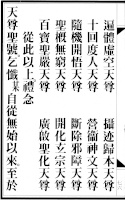 遍體虛空天尊　攝迹歸本天尊
十回度人天尊　營備神文天尊
隨機開悟天尊　斷除邪障天尊
聖概無窮天尊　開化玄宗天尊
百寶聖嚴天尊　廣啟聖化天尊
從此以上禮念
天尊聖號乞懺某自從無始以來至於